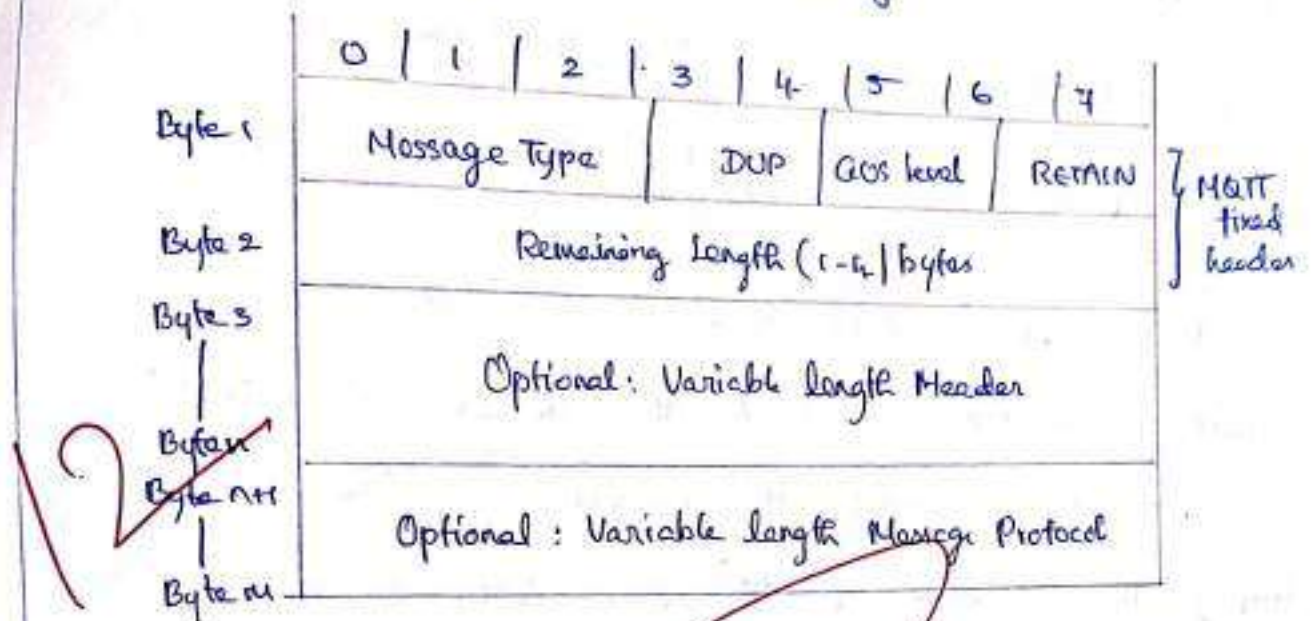 0 | 1 | 2 | 3 | 4 | 5 | 6 | 7
Byte 1 Message Type DUP QOS level RETAIN MQTT fixed header
Byte 2 Remaining Length (1-4) bytes
Byte 3
Optional: Variable length Header
Byte n
Byte n+1
Optional : Variable length Message Protocol
Byte m
12